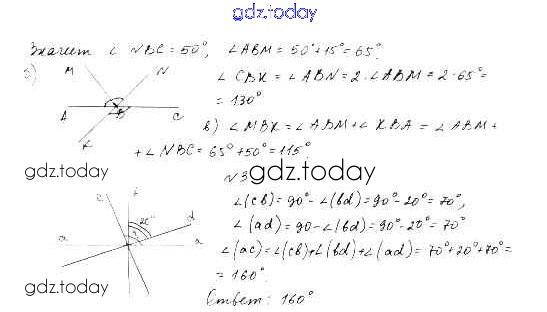 gdz.today
Значит ∠ NBC = 50°, ∠ABM = 50°+15° = 65°.
б)
M N
∠ CBK = ∠ABN = 2·∠ABM = 2·65° =
= 130°
A B C
K
в) ∠ MBK = ∠ ABM + ∠ KBA = ∠ ABM +
+ ∠ NBC = 65°+50° = 115°
gdz.today
gdz.today
N3
c b
20°
d
a a
∠(cb) = 90° - ∠(bd) = 90° - 20° = 70°,
∠(ad) = 90 - ∠(bd) = 90° - 20° = 70°
∠(ac) = ∠(cb) + ∠(bd) + ∠(ad) = 70°+20°+70° =
= 160°.
gdz.today
Ответ: 160°
gdz.today